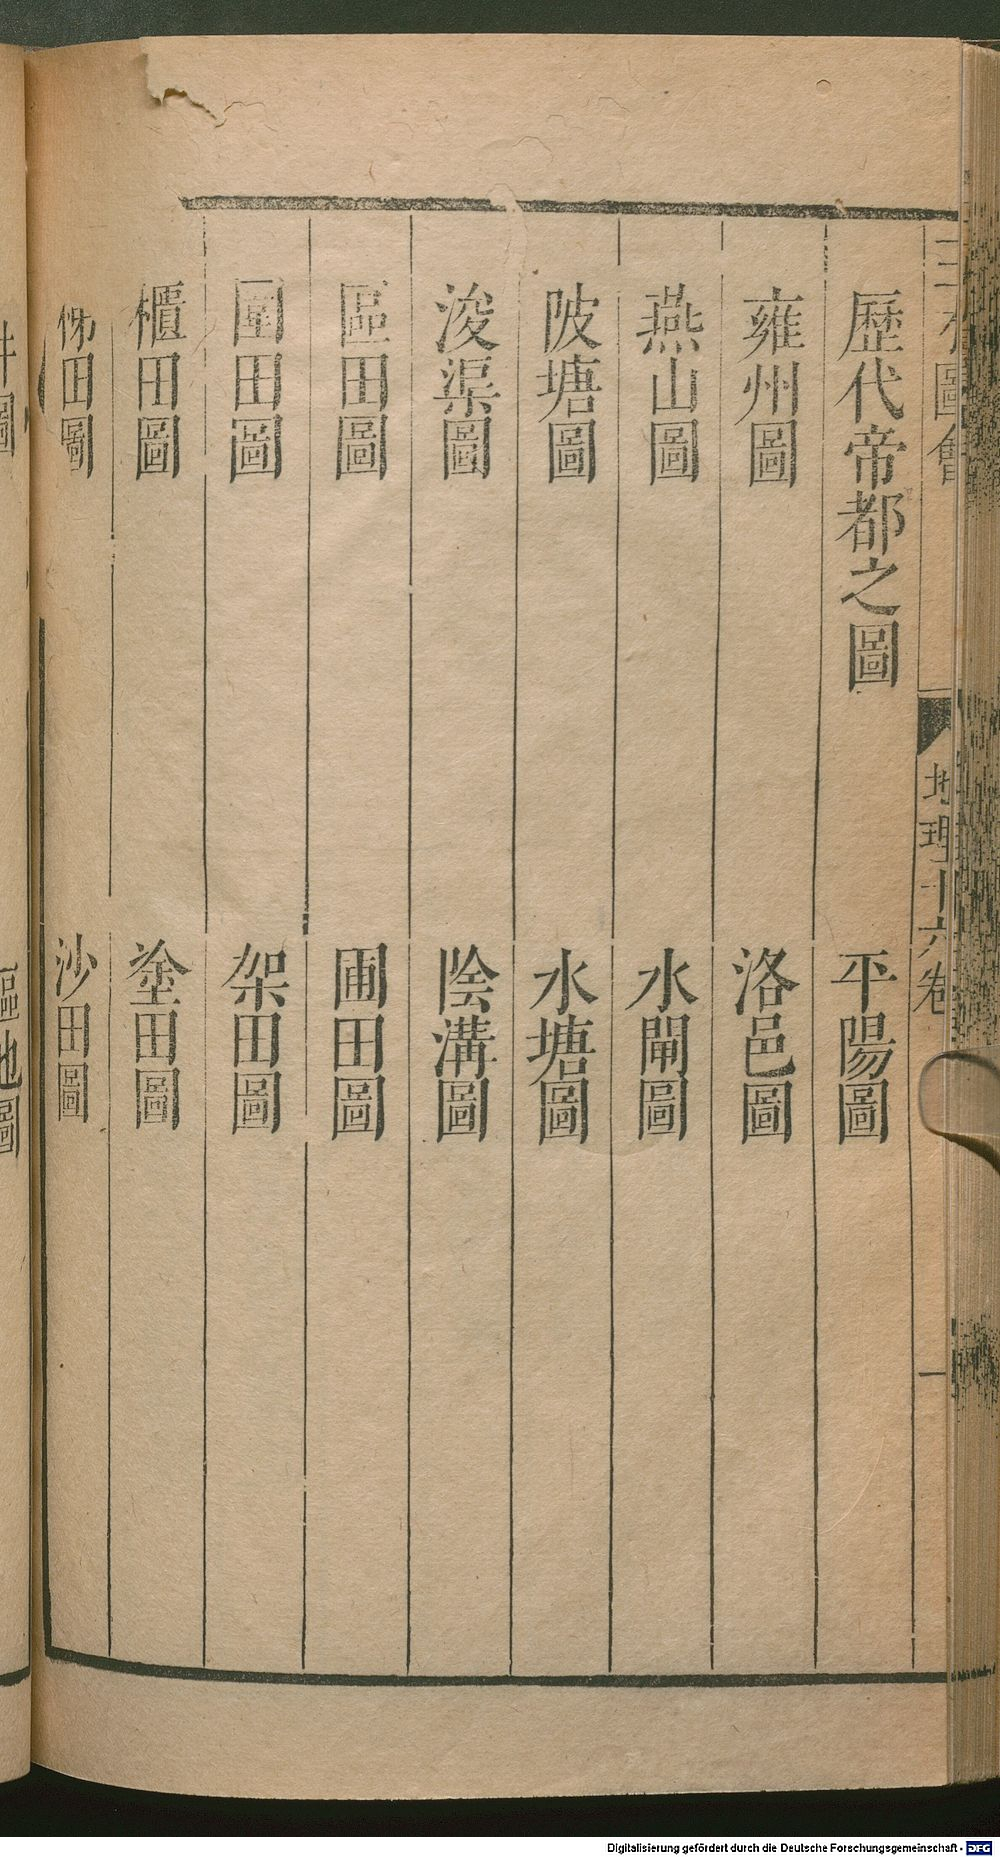 三才圖會 地理十六卷 一
歷代帝都之圖 平陽圖
雍州圖 洛邑圖
燕山圖 水閘圖
陂塘圖 水塘圖
浚渠圖 陰溝圖
區田圖 圃田圖
圍田圖 架田圖
櫃田圖 塗田圖
田圖 沙田圖
井圖 區地圖
Digitalisierung gefördert durch die Deutsche Forschungsgemeinschaft - DFG